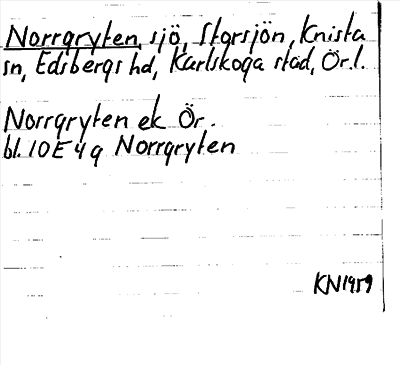 Norrgryten, sjö, Storsjön, Knista
sn, Edsbergs hd, Karlskoga stad, Ör.l.
Norrgryten ek Ör.
bl. 10E4g Norrgryten
KN1959